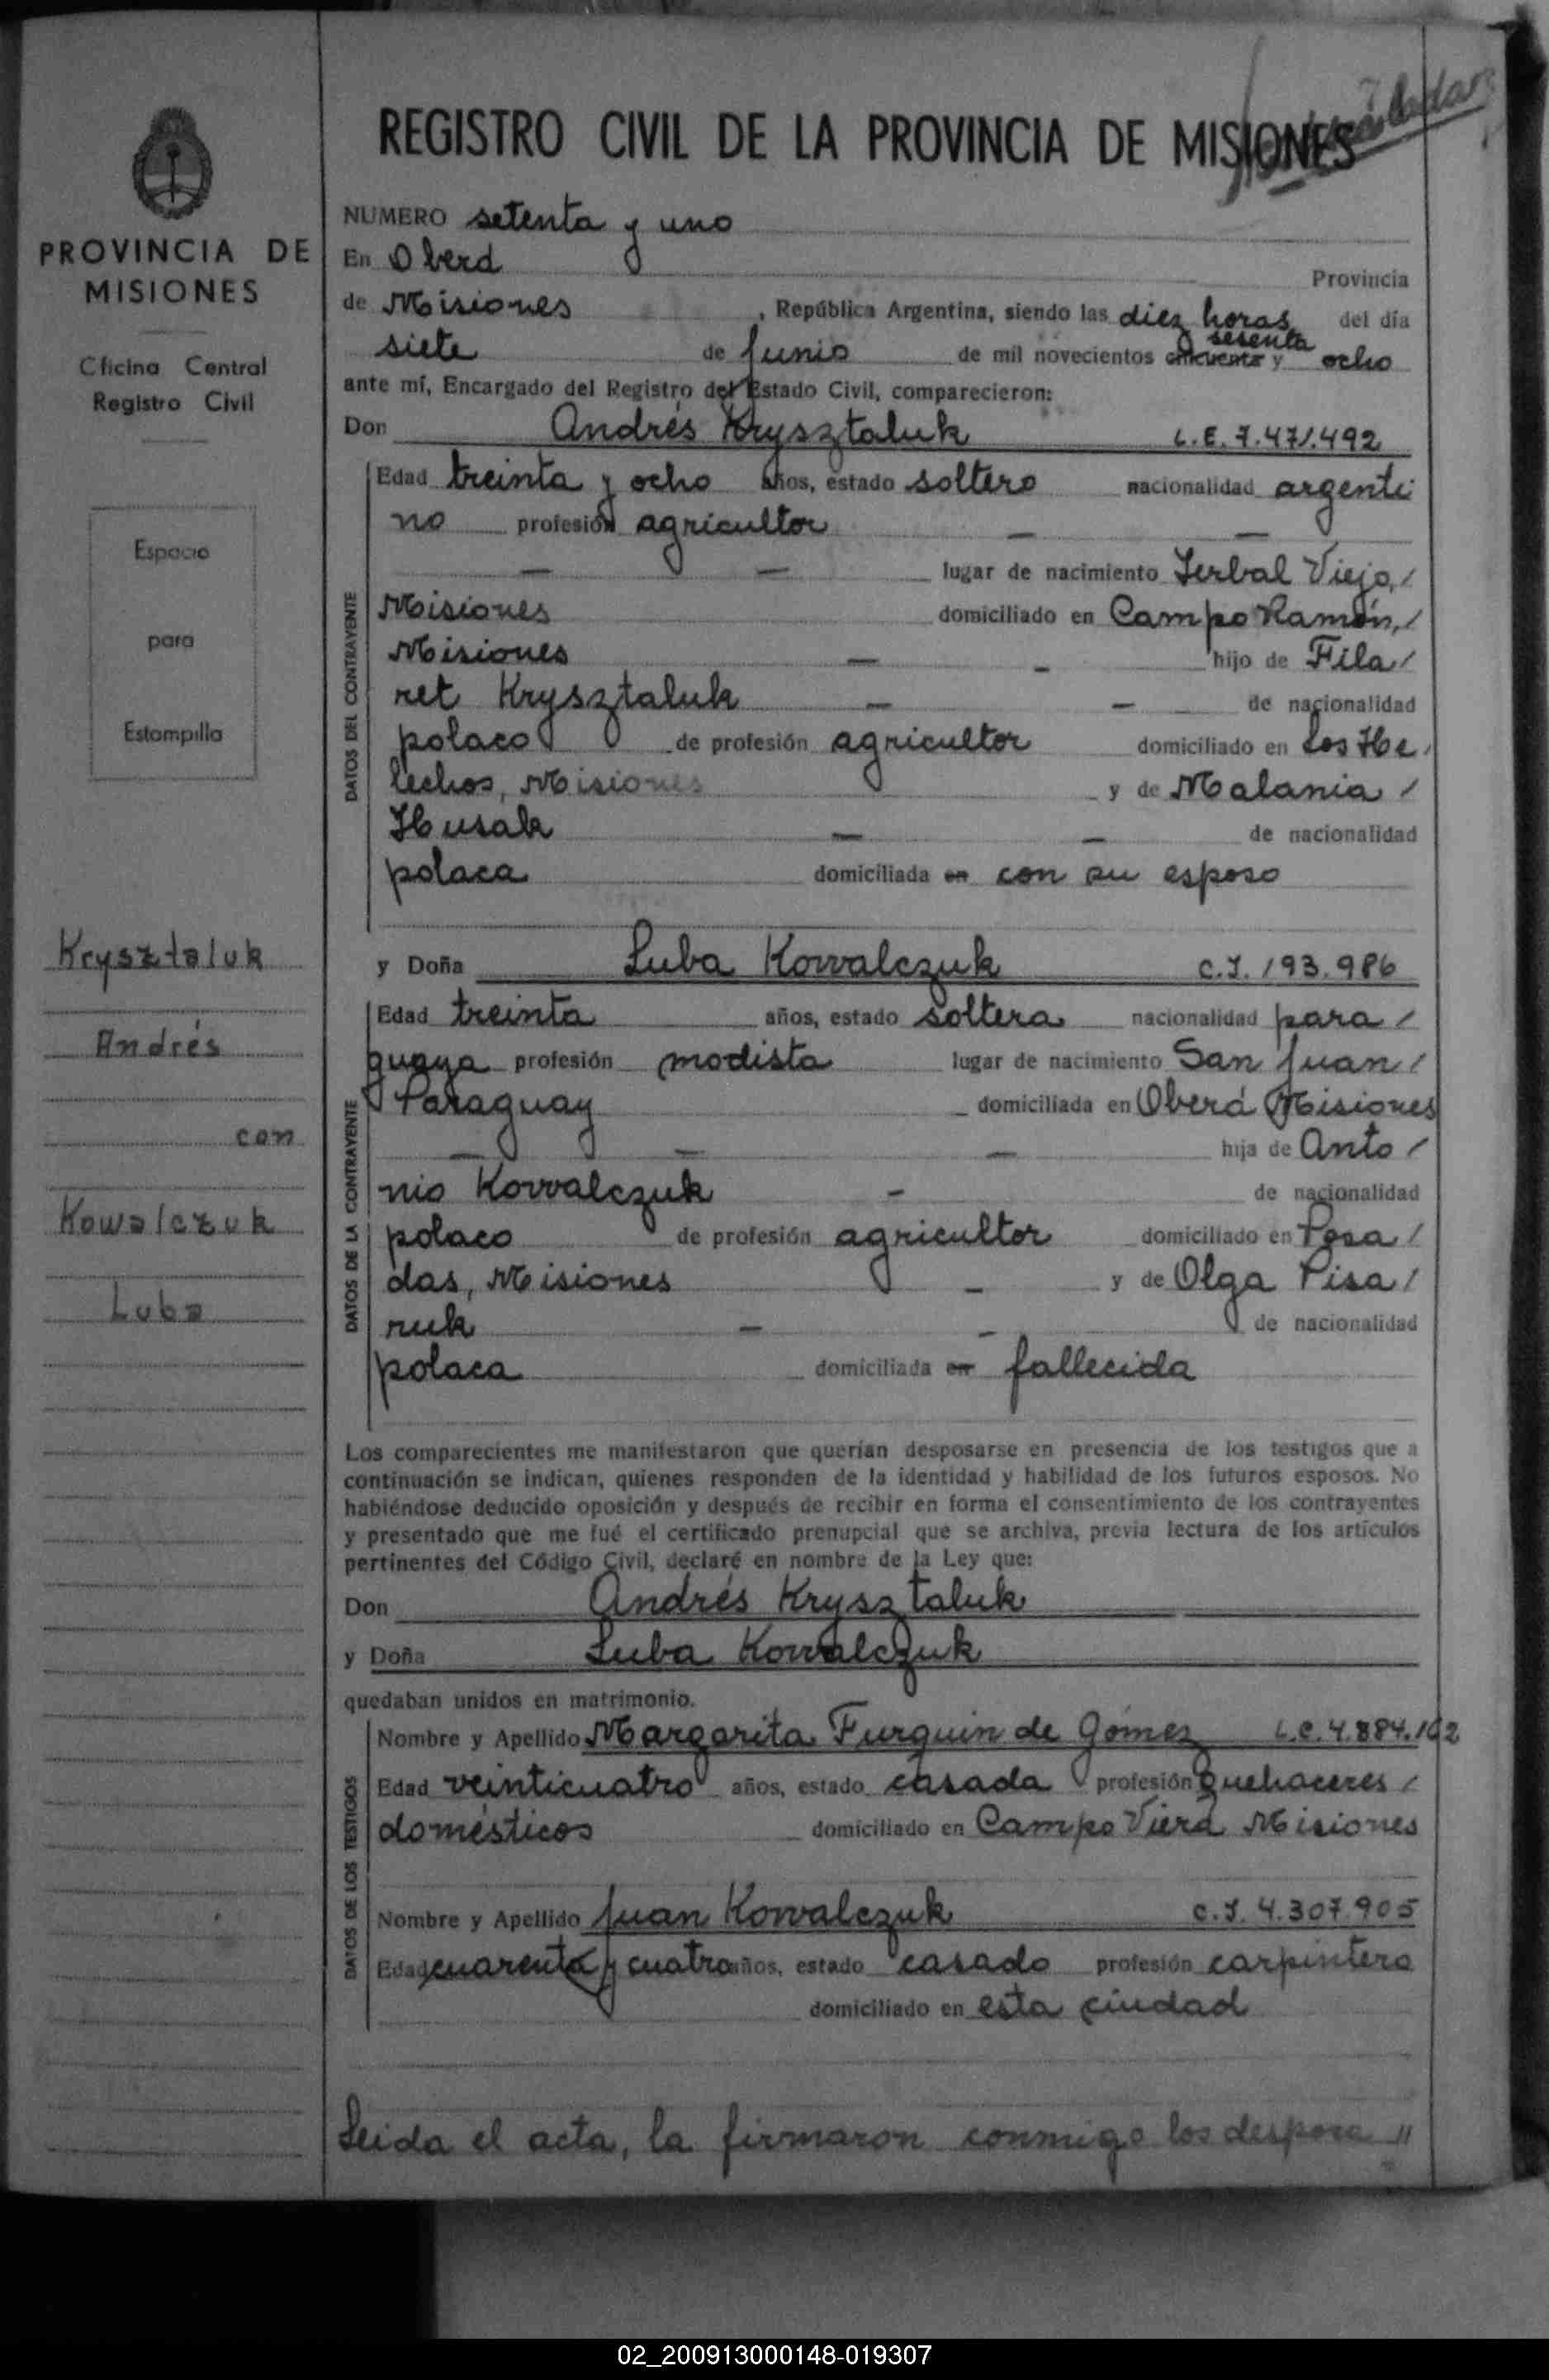 REGISTRO CIVIL DE LA PROVINCIA DE MISIONES
PROVINCIA DE
MISIONES
Oficina Central
Registro Civil
Espacio
para
Estampilla
Krysztaluk
Andrés
con
Kowalczuk
Luba
NUMERO setenta y uno
En Oberá Provincia
de Misiones, República Argentina, siendo las diez horas del día
sesenta
siete de Junio de mil novecientos cincuenta y ocho
ante mí, Encargado del Registro del Estado Civil, comparecieron:
Don Andrés Krysztaluk L.E. 7.471.492
DATOS DEL CONTRAYENTE
Edad treinta y ocho años, estado soltero nacionalidad argenti
no profesión agricultor — —
— — lugar de nacimiento Yerbal Viejo, /
Misiones domiciliado en Campo Ramón, /
Misiones — — hijo de Fila /
ret Krysztaluk — — de nacionalidad
polaco de profesión agricultor domiciliado en Los He /
lechos, Misiones y de Malania /
Husak — — de nacionalidad
polaca domiciliada en con su esposo
y Doña Luba Kowalczuk C.I. 193.986
DATOS DE LA CONTRAYENTE
Edad treinta años, estado soltera nacionalidad para /
guaya profesión modista lugar de nacimiento San Juan /
Paraguay domiciliada en Oberá Misiones
— — — hija de Anto /
nio Kowalczuk — de nacionalidad
polaco de profesión agricultor domiciliado en Posa /
das, Misiones — y de Olga Pisa /
ruk — — de nacionalidad
polaca domiciliada en fallecida
Los comparecientes me manifestaron que querían desposarse en presencia de los testigos que a
continuación se indican, quienes responden de la identidad y habilidad de los futuros esposos. No
habiéndose deducido oposición y después de recibir en forma el consentimiento de los contrayentes
y presentado que me fué el certificado prenupcial que se archiva, previa lectura de los artículos
pertinentes del Código Civil, declaré en nombre de la Ley que:
Don Andrés Krysztaluk
y Doña Luba Kowalczuk
quedaban unidos en matrimonio.
DATOS DE LOS TESTIGOS
Nombre y Apellido Margarita Furquin de Gómez L.C. 4.884.162
Edad veinticuatro años, estado casada profesión quehaceres /
domésticos domiciliado en Campo Viera Misiones
Nombre y Apellido Juan Kowalczuk C.I. 4.307.905
Edad cuarenta y cuatro años, estado casado profesión carpintero
domiciliado en esta ciudad
Leida el acta, la firmaron conmigo los desposa "
02_200913000148-019307